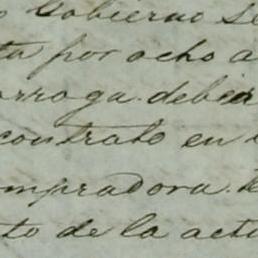 Gobierno Se
ta por ocho a
orroga debier
contrato en
ompradora
to de la actu